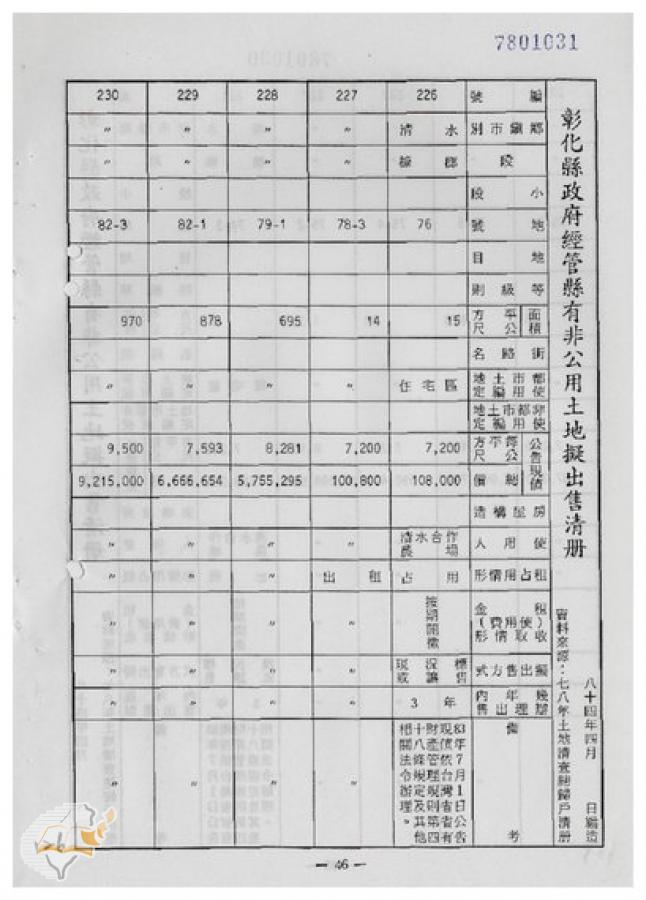 7801031
彰化縣政府經管縣有非公用土地擬出售清册
八十四年四月　日編造
資料來源：七八年土地清查總歸戶清册
編號 226 227 228 229 230
鄉鎮市別 清水 〃 〃 〃 〃
段 槺榔 〃 〃 〃 〃
小段
地號 76 78-3 79-1 82-1 82-3
地目
等級則
面積 平方公尺 15 14 695 878 970
街路名
都市土地使用編定 住宅區 〃 〃 〃 〃
非都市土地使用編定
公告現值 每平方公尺 7,200 7,200 8,281 7,593 9,500
總價 108,000 100,800 5,755,295 6,666,654 9,215,000
房屋構造
使用人 清水合作農場 〃 〃 〃 〃
租占用情形 占用 出租 〃 〃 〃
租金(使用費)收取情形 按期開徵 〃 〃 〃 〃
擬出售方式 現況標售或讓售 〃 〃 〃 〃
幾年內辦理出售 3年 〃 〃 〃 〃
備考
83年7月1日公告
現值依台灣省省有
財產管理規則第四
十八條規定及其他
相關法令辦理。
〃 〃 〃 〃
— 46 —